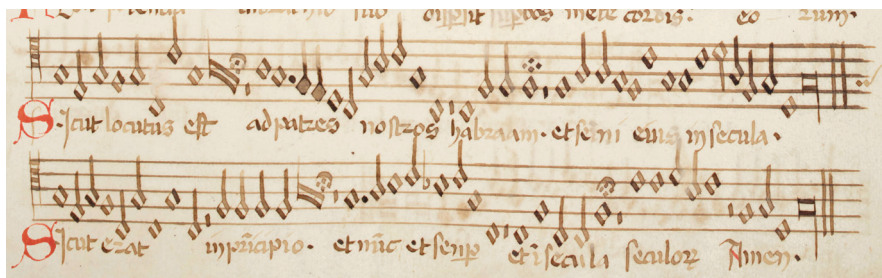 dispsit supbos mete cordis. eo rum.
Sicut locutus est ad patres nostros habraam. et semi eius in secula.
Sicut erat in pricipio. et nuc et semp et i secula seculorꝝ Amen.